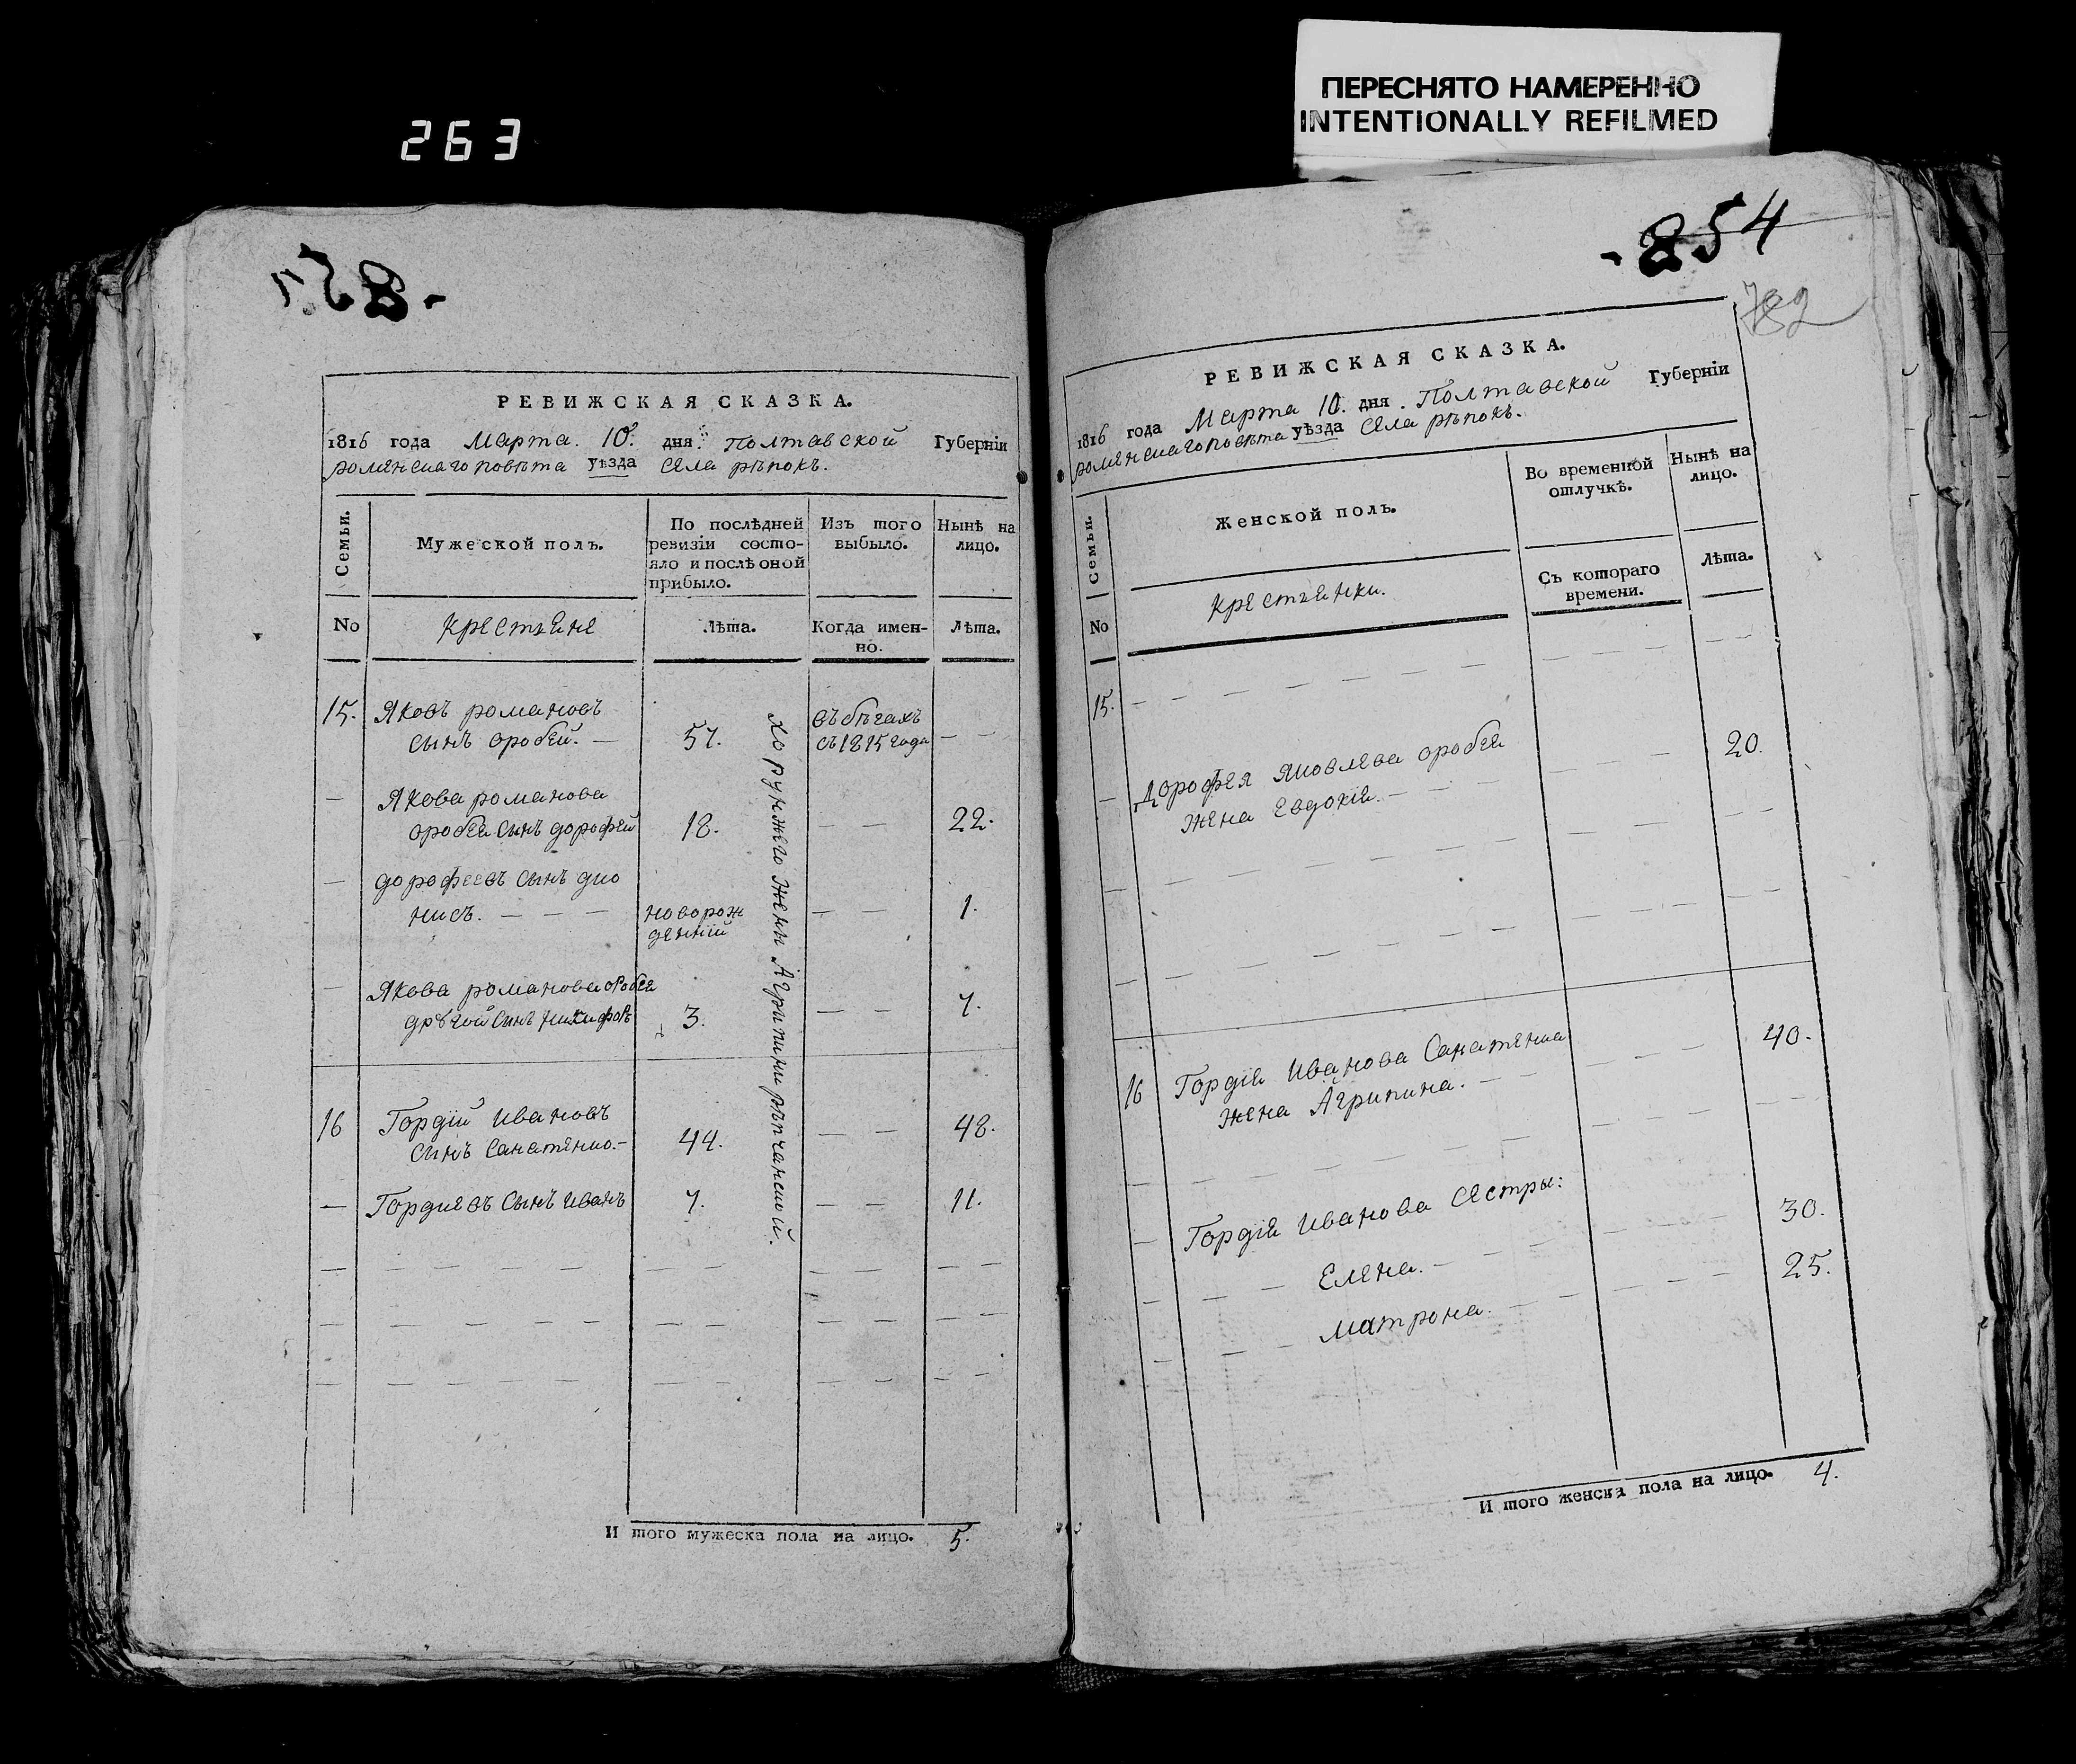 ПЕРЕСНЯТО НАМЕРЕННО
INTENTIONALLY REFILMED
263
РЕВИЖСКАЯ СКАЗКА.
1816 года Марта. 10. дня. Полтавской Губерніи
роменскаго повѣта уѣзда села рѣпокъ.
Семьи.
Мужеской полъ.
По послѣдней ревизіи состо-
яло и послѣ оной
прибыло.
Изъ того
выбыло.
Нынѣ на
лицо.
No
Крестьяне
Лѣта.
Когда имен-
но.
Лѣта.
15. Яковъ романовъ въ бѣгахъ
сынъ оробей. — 57. съ 1815 года — —
— Якова романова
оробея сынъ дорофей 18. — — 22.
— дорофеевъ сынъ дио
нисъ. — — — новорож — — 1.
денній
— Якова романова оробея
другой сынъ никифоръ 3. — — 7.
16 Гордій Ивановъ
сынъ Санатенко. — 44. — — 48.
— Гордиевъ сынъ иванъ 7. — — 11.
хорунжего жены Агрипини рѣпчанской.
И того мужеска пола на лицо. 5.
854
782
РЕВИЖСКАЯ СКАЗКА.
1816 года Марта 10. дня. Полтавской Губерніи
роменскаго повѣта уѣзда села рѣпокъ.
Семьи.
Женской полъ.
Во временной
отлучкѣ.
Нынѣ на
лицо.
No
крестьянки.
Съ котораго
времени.
Лѣта.
15. — — — — — —
— Дорофея яковлева оробея — 20.
жена Евдокія. — —
16 Гордія Иванова Санатенка — — — 40.
жена Агрипина. —
— Гордія Иванова сестры:
— — — Елена. — 30.
— — — матрона. — 25.
И того женска пола на лицо. 4.